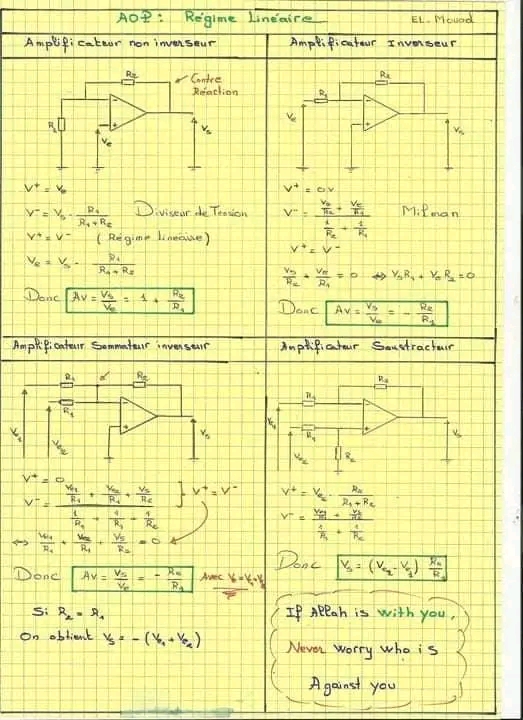 AOP : Régime Linéaire
EL. Mouad
Amplificateur non inverseur
R2
Contre
Réaction
R1
-
+
Ve
Vs
V+ = Ve
V- = Vs . R1/(R1+R2) Diviseur de Tension
V+ = V- (Régime linéaire)
Ve = Vs . R1/(R1+R2)
Donc Av = Vs/Ve = 1 + R2/R1
Amplificateur Inverseur
R2
R1
-
+
Ve
Vs
V+ = 0V
V- = (Vs/R2 + Ve/R1)/(1/R2 + 1/R1) Milman
V+ = V-
Vs/R2 + Ve/R1 = 0 ⇔ VsR1 + VeR2 = 0
Donc Av = Vs/Ve = - R2/R1
Amplificateur Sommateur inverseur
R1
R2
R1
-
+
Ve1
Ve2
Vs
V+ = 0
V- = (Ve1/R1 + Ve2/R1 + Vs/R2)/(1/R1 + 1/R1 + 1/R2) } V+ = V-
⇔ Ve1/R1 + Ve2/R1 + Vs/R2 = 0
Donc Av = Vs/Ve = - R2/R1
Si R2 = R1
On obtient Vs = - (Ve1 + Ve2)
Amplificateur Soustracteur
R2
R1
R1
-
+
R2
Ve1
Ve2
Vs
V+ = Ve2 . R2/(R1+R2)
V- = (Ve1/R1 + Vs/R2)/(1/R1 + 1/R2)
Donc Vs = (Ve2 - Ve1) R2/R1
If Allah is with you,
Never worry who is
Against you